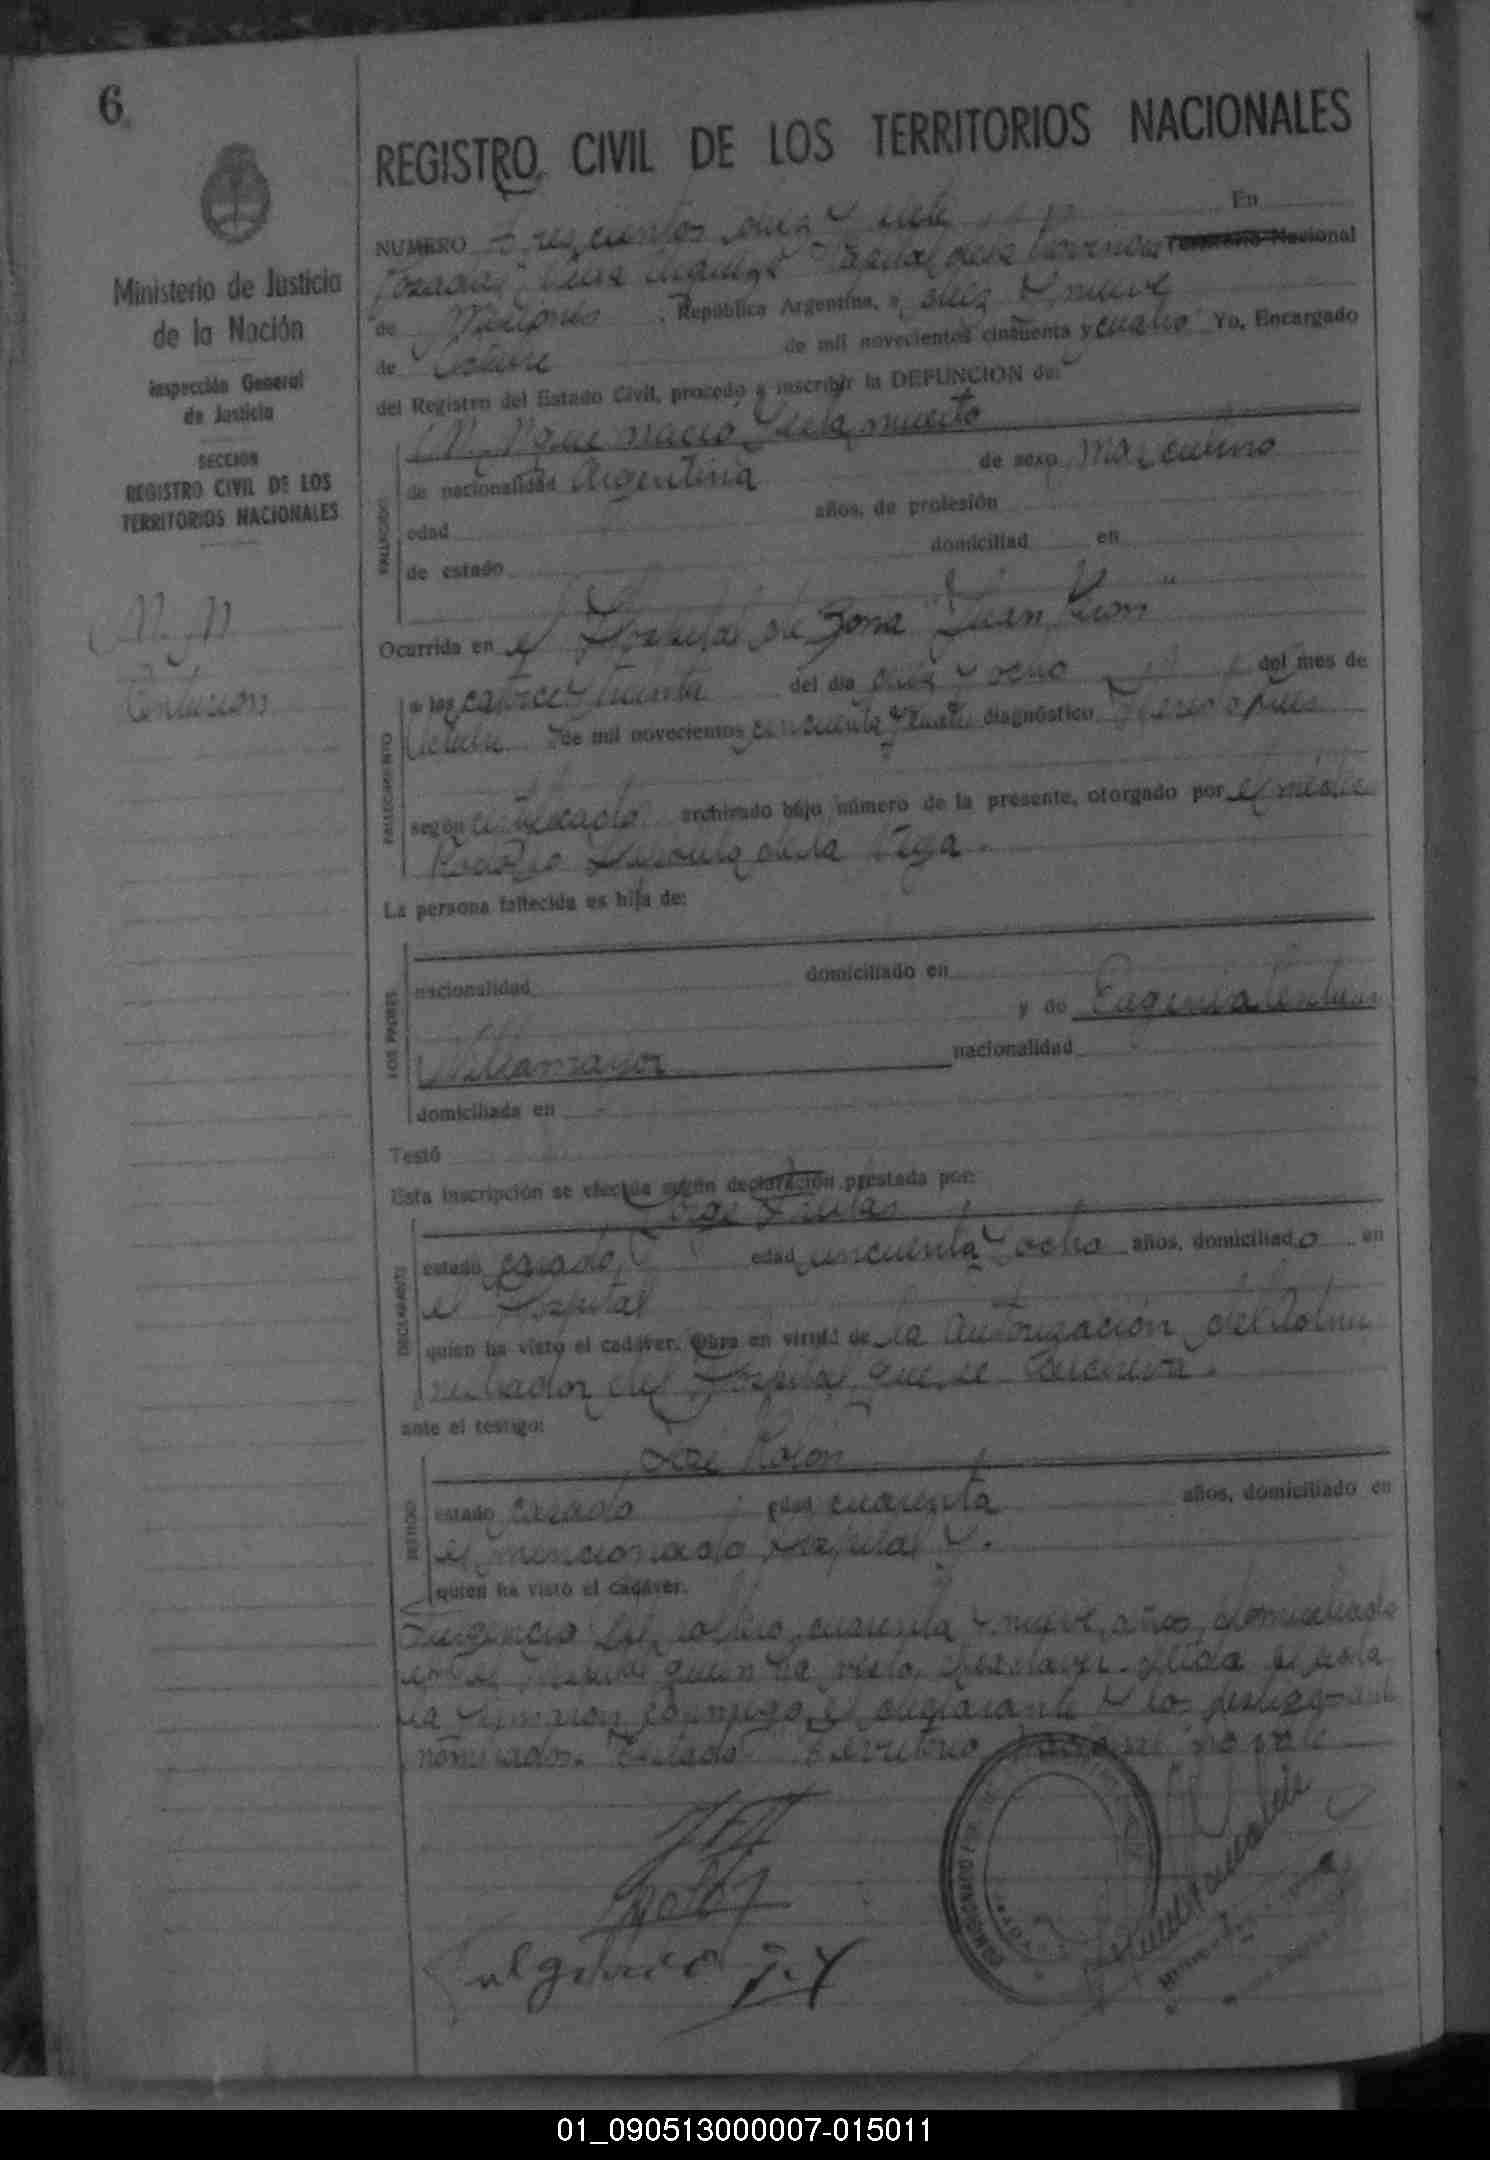 6
REGISTRO CIVIL DE LOS TERRITORIOS NACIONALES
Ministerio de Justicia
de la Nación
Inspección General
de Justicia
SECCION
REGISTRO CIVIL DE LOS
TERRITORIOS NACIONALES
N. N
Centurion
NUMERO trescientos diez y siete En
Posadas, Capital de la Provincia Territorio Nacional
de Misiones, República Argentina, a diez y nueve
de Octubre de mil novecientos cincuenta y cuatro Yo, Encargado
del Registro del Estado Civil, procedo a inscribir la DEFUNCION de:
N. N que nació muerto
FALLECIDO
de nacionalidad Argentina de sexo masculino
edad años, de profesión
de estado domiciliad en
Ocurrida en el Hospital de Zona "Juan Perón"
FALLECIMIENTO
a las catorce y treinta del día diez y ocho del mes de
Octubre de mil novecientos cincuenta y cuatro diagnóstico
según certificado archivado bajo número de la presente, otorgado por el médico
de la Vega.
La persona fallecida es hija de:
LOS PADRES
nacionalidad domiciliado en
y de Eugenia Centurion
Villamayor nacionalidad
domiciliada en
Testó
Esta inscripción se efectúa según declaración prestada por:
Jorge Frutas
DECLARANTE
estado casado edad cincuenta y ocho años, domiciliado en
el Hospital
quien ha visto el cadáver. Obra en virtud de la autorización del Admi
nistrador del Hospital que se archiva.
ante el testigo:
José Rolon
TESTIGO
estado casado edad cuarenta años, domiciliado en
el mencionado Hospital y.
quien ha visto el cadáver.
Fulgencio soltero, cuarenta y nueve años, domiciliado
en el Hospital quien ha visto el cadaver. Leída el acta
la firmaron conmigo, el declarante y los testigos
nombrados. Testado: Territorio Nacional no vale
01_090513000007-015011